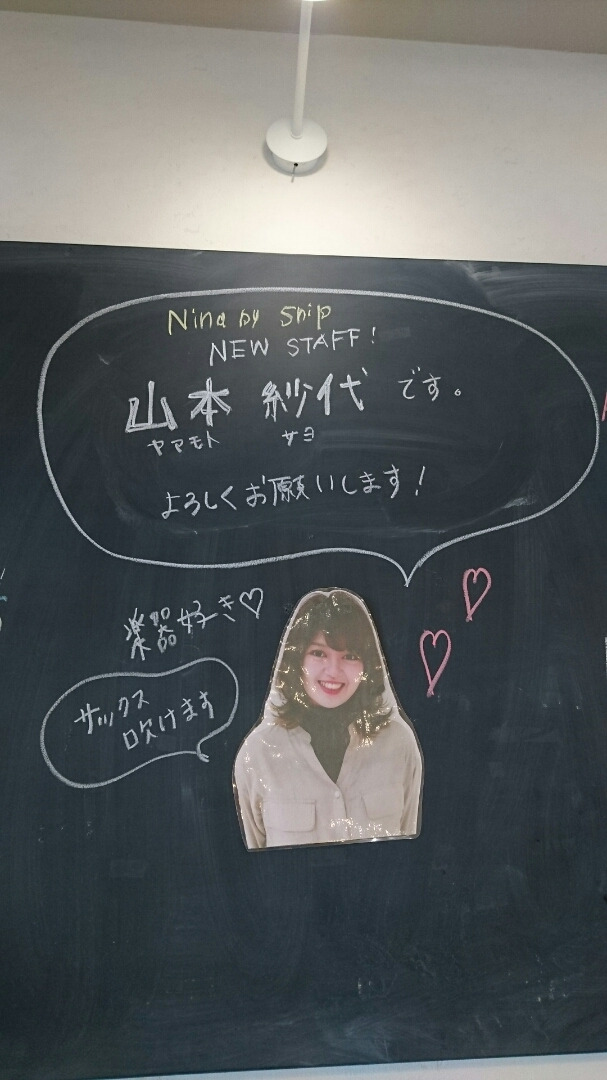 Nina by Snip
NEW STAFF!
山本 紗代 です。
ヤマモト サヨ
よろしくお願いします!
楽器好き♡
サックス
吹けます